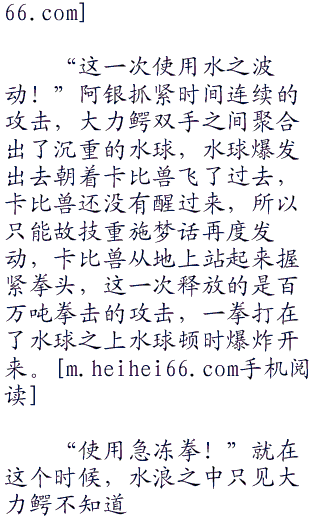 66.com]
“这一次使用水之波
动！”阿银抓紧时间连续的
攻击，大力鳄双手之间聚合
出了沉重的水球，水球爆发
出去朝着卡比兽飞了过去，
卡比兽还没有醒过来，所以
只能故技重施梦话再度发
动，卡比兽从地上站起来握
紧拳头，这一次释放的是百
万吨拳击的攻击，一拳打在
了水球之上水球顿时爆炸开
来。[m.heihei66.com手机阅
读]
“使用急冻拳！”就在
这个时候，水浪之中只见大
力鳄不知道